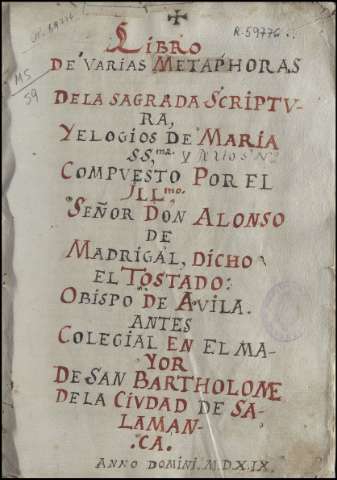 R-59776
MS
59
LIBRO
DE VARIAS METAPHORAS
DE LA SAGRADA SCRIPTV-
RA,
Y ELOGIOS DE MARÍA
SS.ma. y
COMPVESTO POR EL
JLLmo.
SEÑOR DON ALONSO
DE
MADRIGAL, DICHO
EL TOSTADO:
OBISPO DE AVILA.
ANTES
COLEGIAL EN EL MA-
YOR
DE SAN BARTHOLOME
DE LA CIVDAD DE SA-
LAMAN-
.CA.
ANNO DOMINI. M.D.XIX.